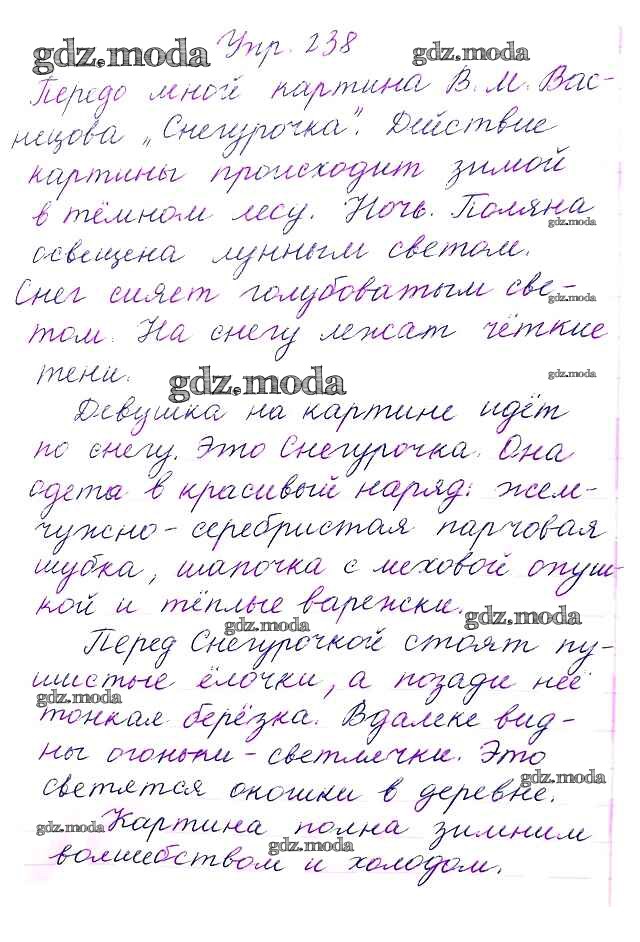 gdz.moda Упр. 238 gdz.moda
Передо мной картина В. М. Вас-
нецова „Снегурочка". Действие
картины происходит зимой
в тёмном лесу. Ночь. Поляна
gdz.moda
освещена лунным светом.
Снег сияет голубоватым све-
gdz.moda
том. На снегу лежат чёткие
тени. gdz.moda gdz.moda
Девушка на картине идёт
по снегу. Это Снегурочка. Она
одета в красивый наряд: жем-
чужно-серебристая парчовая
шубка, шапочка с меховой опуш-
кой и тёплые варежки.
gdz.moda gdz.moda
Перед Снегурочкой стоят пу-
шистые ёлочки, а позади неё
gdz.moda
тонкая берёзка. Вдалеке вид-
ны огоньки - светлячки. Это
gdz.moda
светятся окошки в деревне.
gdz.moda Картина полна зимним
gdz.moda
волшебством и холодом.